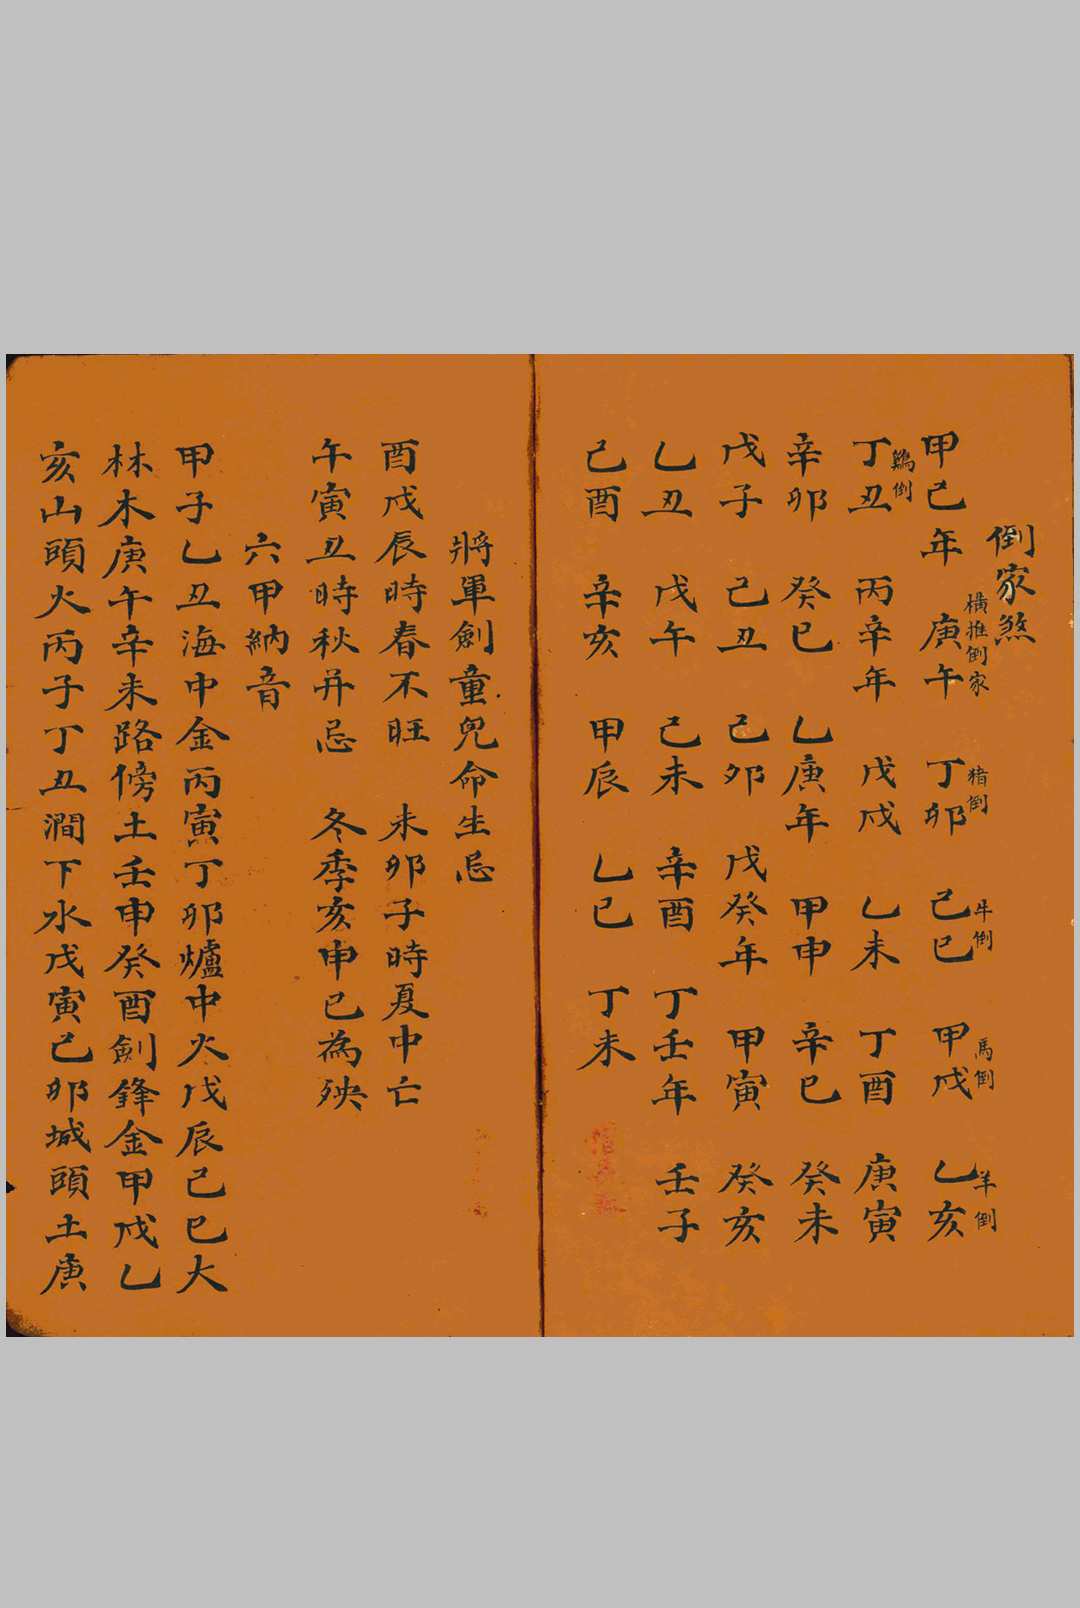 倒家煞
甲己年 庚午 丁卯 己巳 甲戌 乙亥
橫推倒家 猪倒 牛倒 馬倒 羊倒
丁丑 丙辛年 戊戌 乙未 丁酉 庚寅
鷄倒
辛卯 癸巳 乙庚年 甲申 辛巳 癸未
戊子 己丑 己卯 戊癸年 甲寅 癸亥
乙丑 戊午 己未 辛酉 丁壬年 壬子
己酉 辛亥 甲辰 乙巳 丁未
將軍劍童児命生忌
酉戌辰時春不旺 未卯子時夏中亡
午寅丑時秋并忌 冬季亥申巳為殃
六甲納音
甲子乙丑海中金丙寅丁卯爐中火戊辰己巳大
林木庚午辛未路傍土壬申癸酉劍鋒金甲戌乙
亥山頭火丙子丁丑澗下水戊寅己卯城頭土庚